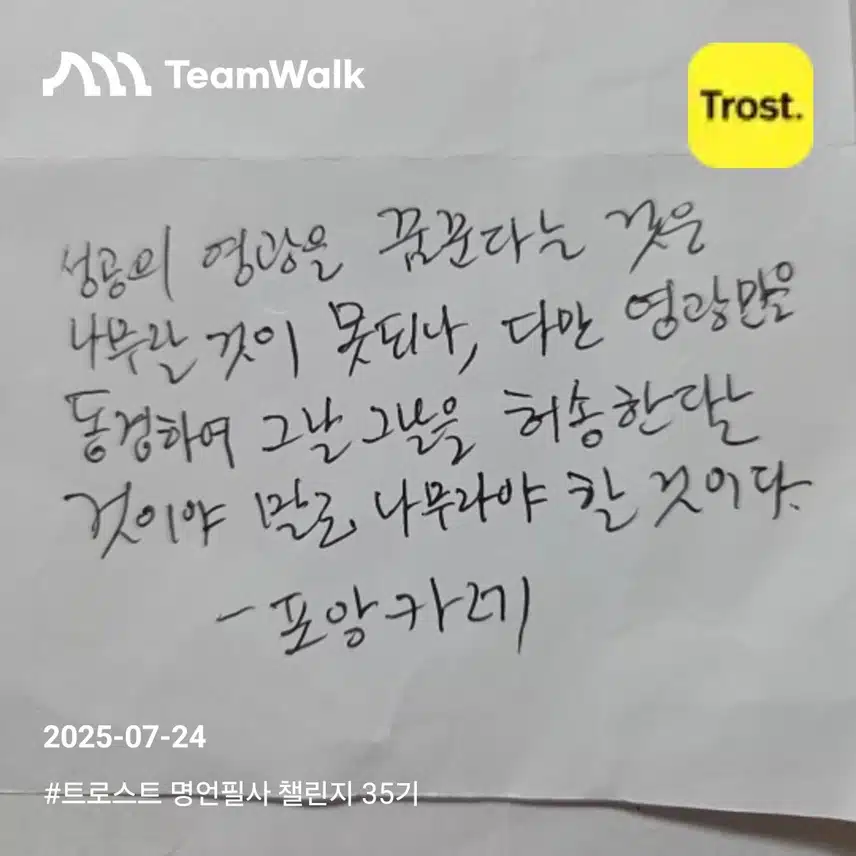 TeamWalk
Trost.
성공의 영광을 꿈꾼다는 것은
나무랄 것이 못되나, 다만 영광만을
동경하여 그날 그날을 허송한다는
것이야 말로 나무라야 할 것이다.
- 포앙카레
2025-07-24
#트로스트 명언필사 챌린지 35기